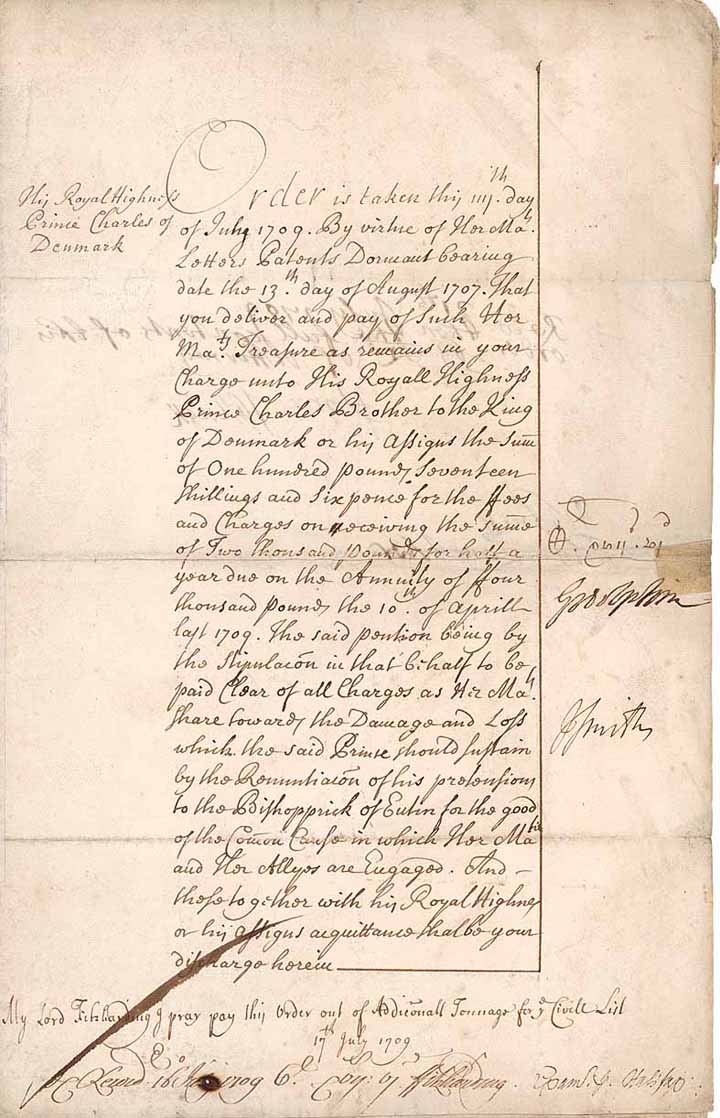 His Royal Highness
Prince Charles of
Denmark
Order is taken this iiijth. day
of July 1709. By virtue of Her Mats.
Letters Patents Dormant bearing
date the 13th. day of August 1707. That
you deliver and pay of such Her
Mats. Treasure as remains in your
Charge unto His Royall Highness
Prince Charles Brother to the King
of Denmark or his Assigns the sume
of One hundred pounds Seventeen
shillings and six pence for the ffees
and Charges on receiving the sume
of Two thousand pounds for half a
year due on the Annuity of ffour
thousand pounds the 10th. of Aprill
last 1709. The said pention being by
the stipulacon in that behalf to be
paid Clear of all Charges as Her Mats.
share towards the Damage and Loss
which the said Prince should sustain
by the Renuntiacon of his pretensions
to the Bishopprick of Eutin for the good
of the Comon Cause in which Her Matie
and Her Allyes are Engaged. And
these together with his Royal Highness
or his Assigns acquittance shalbe your
discharge herein
Godolphin
JSmith
My Lord Fitzharding I pray pay this Order out of Addiconall Tonnage for ye Civill List
17th July 1709
1709 Fitzharding Halifax